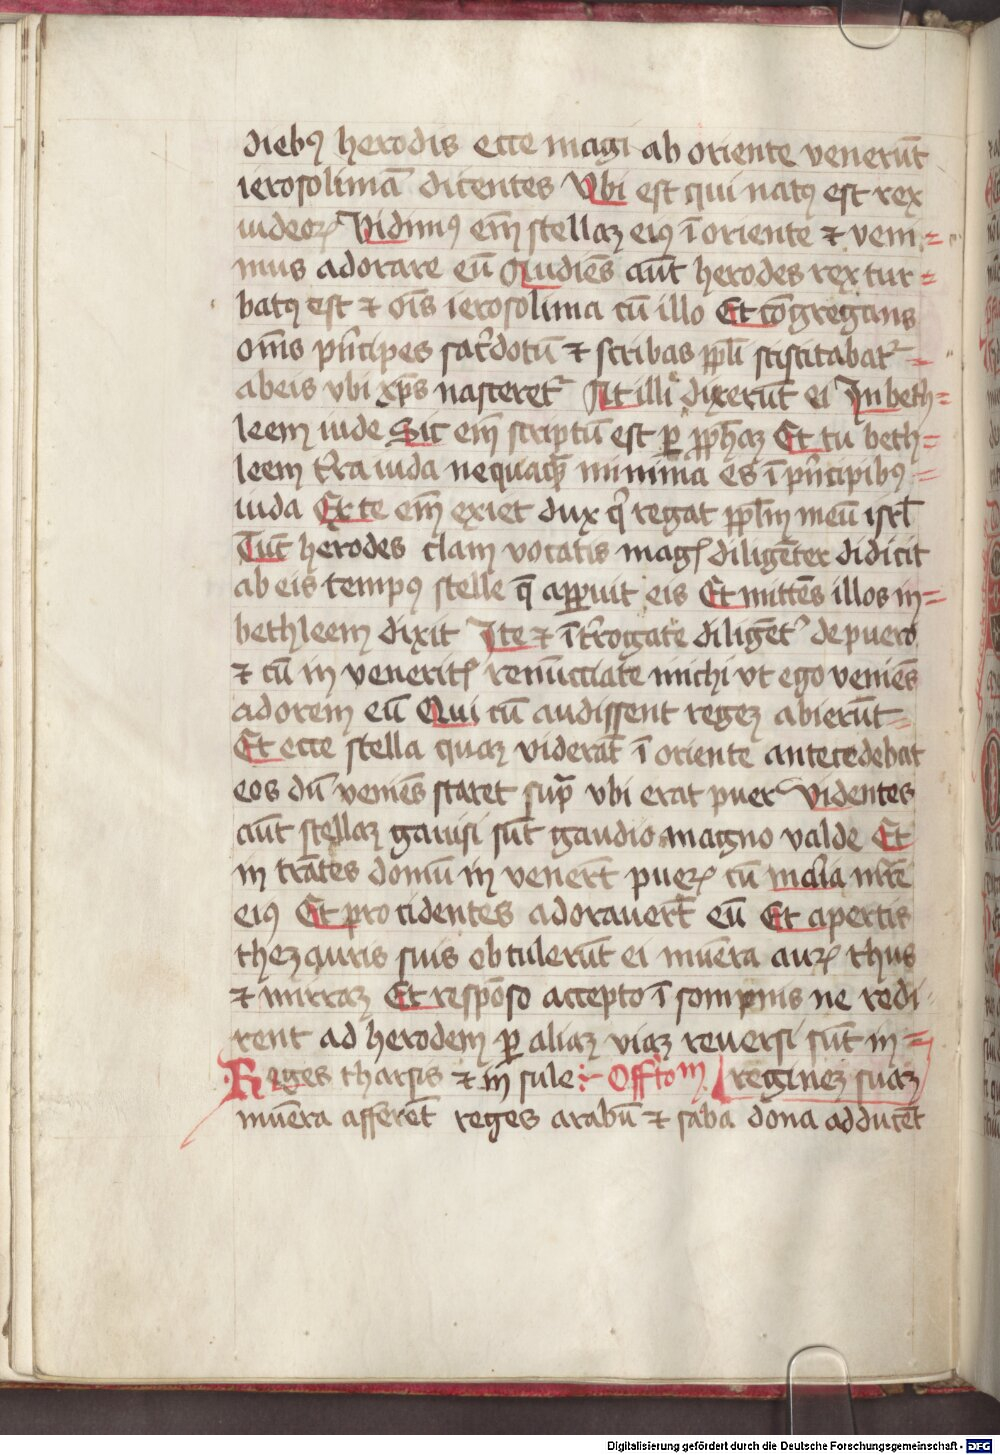 dieb⁹ herodis ecce magi ab oriente venerūt
ierosolimā dicentes Vbi est qui nat⁹ est rex
iudeoꝝ Vidim⁹ em̄ stellaꝫ ei⁹ ī oriente ⁊ veni=
mus adorare eū Audiēs aūt herodes rex tur=
bat⁹ est ⁊ oīs ierosolima cū illo Et cōgregans
om̄s pⁱncipes sac͛dotū ⁊ scribas ppl̄i sciscitabat᷑
ab eis vbi xp̄s nasceret᷑ At illi dixerūt ei In beth=
leem iude Sic em̄ scriptū est ꝑ ꝓph̄aꝫ Et tu beth=
leem t͛ra iuda nequaqꝫ minima es ī pⁱncipib⁹
iuda Ex te em̄ exiet dux qⁱ regat ppl̄m meū isrl̄
Tūc herodes clam vocatis magꝭ diligēter didicit
ab eis temp⁹ stelle q̄ apparuit eis Et mittēs illos in=
bethleem dixit Ite ⁊ īt͛rogate diligēt͛ de puero
⁊ cū in veneritꝭ renūcciate michi vt ego veniēs
adorem eū Qui cū audissent regeꝫ abierūt=
Et ecce stella quaꝫ viderāt ī oriente antecedebat
eos dū veniēs staret supᷓ vbi erat puer Videntes
aūt stellaꝫ gauisi sūt gaudio magno valde Et
in trātes domū in venerūt pueꝝ cū maria mr̄e
ei⁹ Et procidentes adoraverūt eū Et apertis
thezauris suis obtulerūt ei mūera auꝝ thus
⁊ mirraꝫ Et respōso accepto ī sompnis ne redi
rent ad herodem ꝑ aliaꝫ viaꝫ reuersi sūt in=
Reges tharsis ⁊ in sule Offto͛m regineꝫ suaꝫ
mūera afferēt reges arabū ⁊ saba dona adducēt
Digitalisierung gefördert durch die Deutsche Forschungsgemeinschaft - DFG